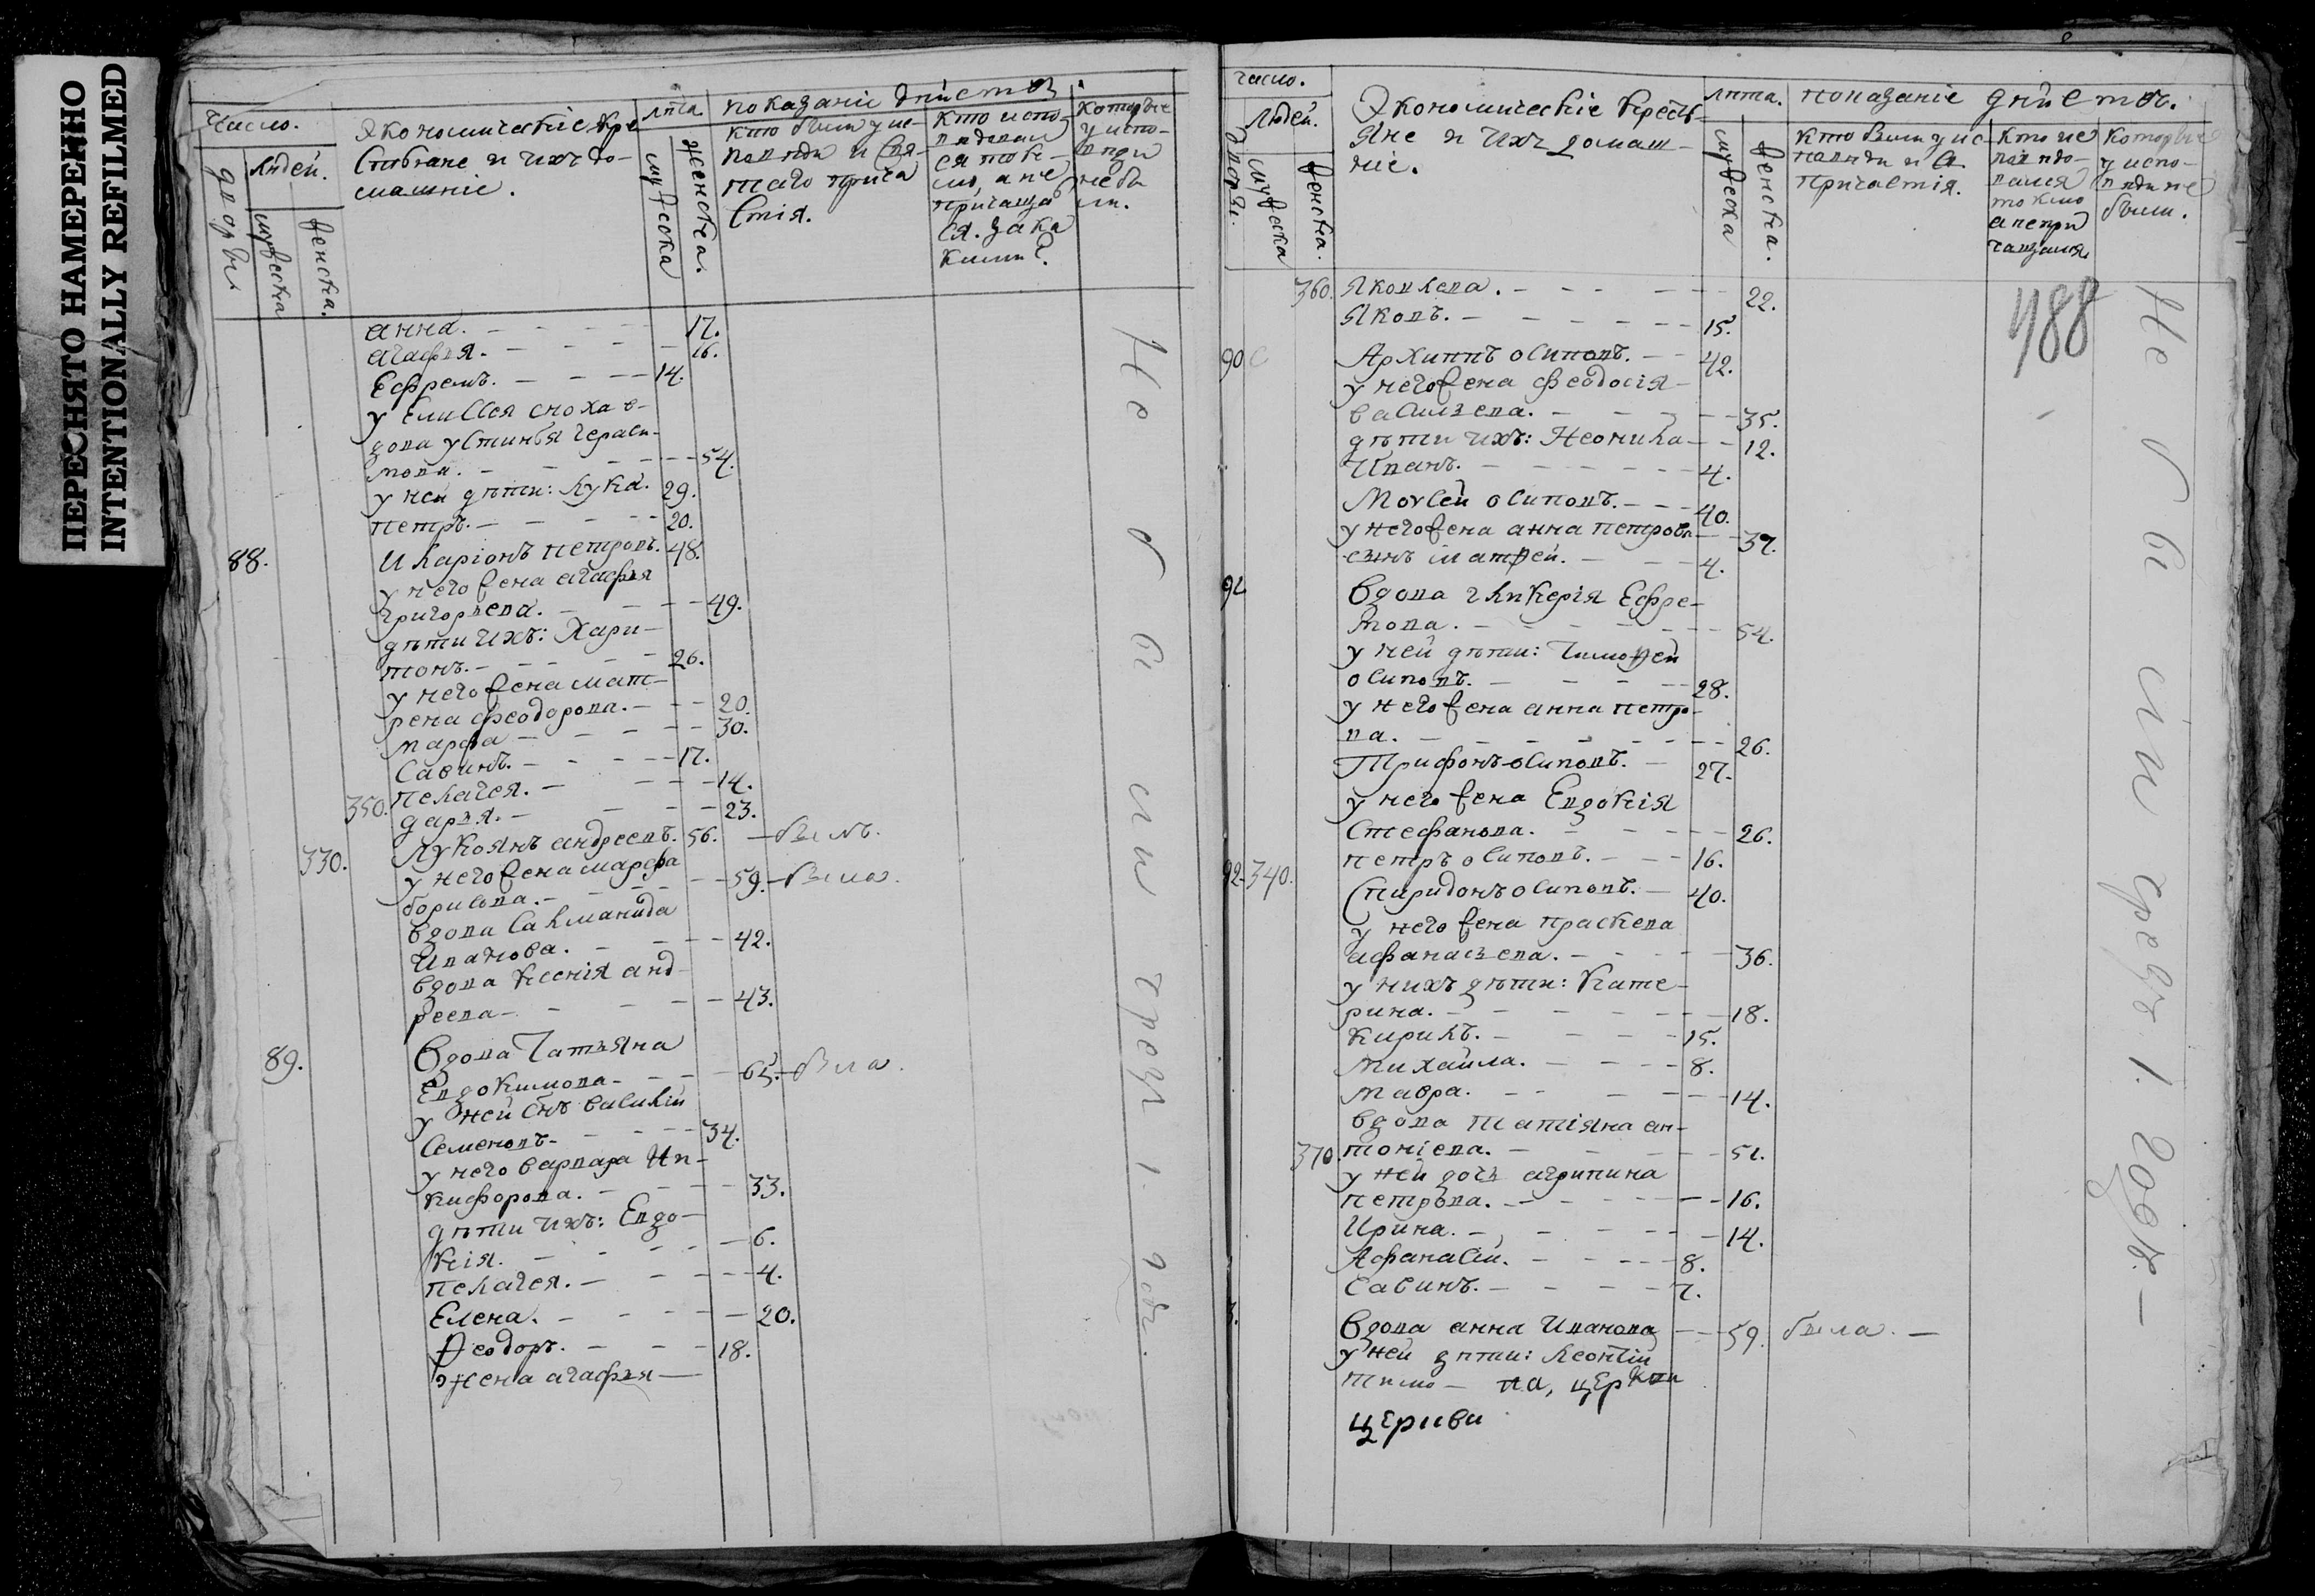 ПЕРЕСНЯТО НАМЕРЕННО
INTENTIONALLY REFILMED
Число.
Людей.
дворы
мужеска
женска.
Экономическіе Кре
стьяне и ихъ до-
машніе.
лѣта
мужеска
женска.
показаніе дѣйство
кто были у ис-
повѣди и свя-
таго прича
стія.
кто испо-
ведовал
ся ток-
мо, а не
причаща
ся.
которые
у испо-
веди
не бы
ли.
анна. 17.
агафья. 16.
Ефремъ. 14.
у Елиссея сноха в-
дова устинья гераси-
мова. 54.
у неи дѣти: лука. 29.
петръ. 20.
88. Иларіонъ петровъ. 48.
у него жена агафья
григорьева. 49.
дѣти ихъ: Хари-
тонъ. 26.
у него жена мат-
рена феодорова. 20.
марфа 30.
Савинъ. 17.
350. пелагея. 14.
дарья. 23.
330. Лукоянъ андреевъ. 56. былъ.
у него жена марфа
борисова. 59. была.
вдова Салманида
Иванова. 42.
вдова Ксенія анд
реева 43.
89. Вдова Татьяна
Евдокимова 65. была.
у ней снъ василій
Семеновъ 34.
у него варвара Ни-
кифорова. 33.
дѣти ихъ: Евдо-
кія. 6.
пелагея. 4.
Елена. 20.
Ѳеодоръ. 18.
жена агафья
Не бы ли чрезъ 1. годъ.
число.
Людей.
дворы.
мужеска
женска.
Экономическіе Кресть-
яне и ихъ домаш-
ніе.
лѣта.
мужеска
женска.
показаніе дѣйствъ.
кто были у ис-
повѣди и с.
причастія.
кто ис
поведо-
вался
токмо
а непри
чащался
которые
у испо-
вѣди не
были.
360. Яковлева. 22.
Яковъ. 15.
488
90 Архиппъ осиповъ. 42.
у него жена феодосія
васильева. 35.
дѣти ихъ: Неонила 12.
Иванъ. 4.
Моѵсей осиповъ. 40.
у него жена анна петрова 37.
сынъ матѳей. 4.
91 Вдова гликерія Ефре-
мова. 54.
у ней дѣти: Тимоѳей
осиповъ. 28.
у него жена анна петро-
ва. 26.
Трифонъ осиповъ. 27.
у него жена Евдокія
Стефанова. 26.
петръ осиповъ. 16.
92. 340. Спиридонъ осиповъ. 40.
у него жена праскева
афанасьева. 36.
у нихъ дѣти: Кате-
рина. 18.
Кирилъ. 15.
Михайла. 8.
Мавра. 14.
вдова татіяна ан-
370. тоніева. 51.
у ней дочь агрипина
петрова. 16.
Ирина. 14.
Афанасій. 8.
Савинъ. 7.
3. Вдова анна Иванова 59. была.
у ней дѣти: леонтій
церкви
Не бы ли чрезъ 1. годъ.